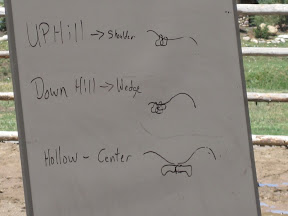 UPHill → Shoulder
Down Hill → Wedge
Hollow - Center